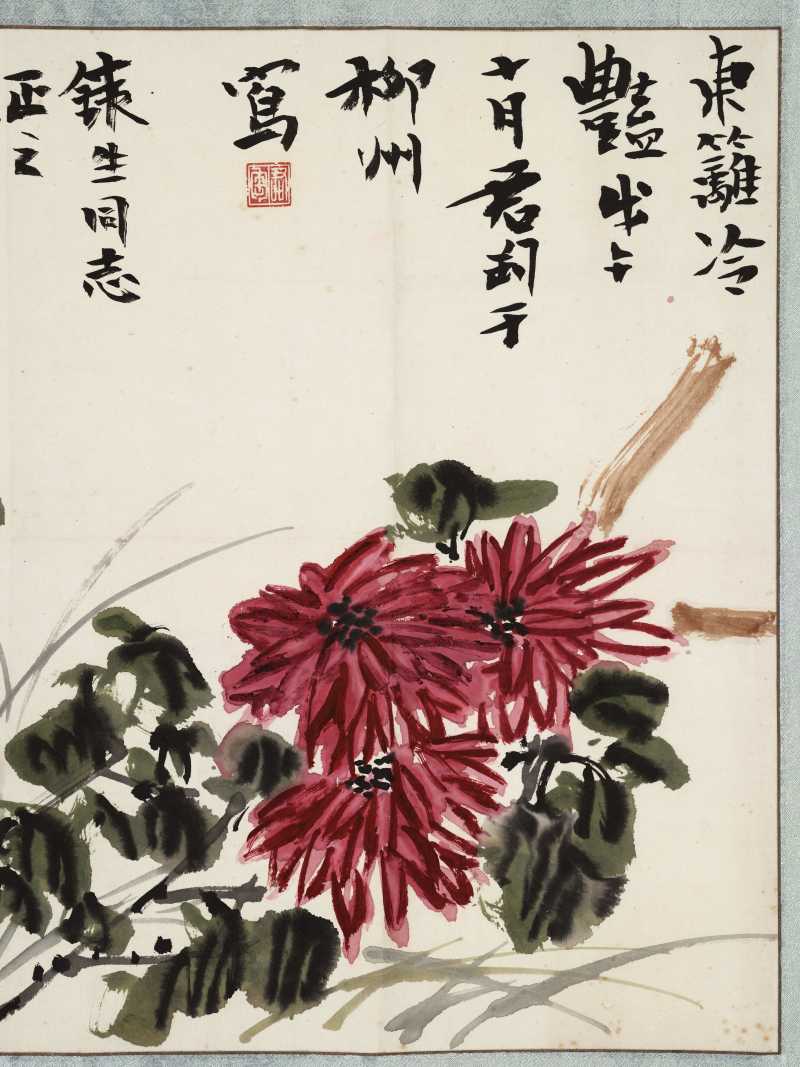 東籬冷
豔戊午
十月君匋于
柳州
寫
銕生同志
正之